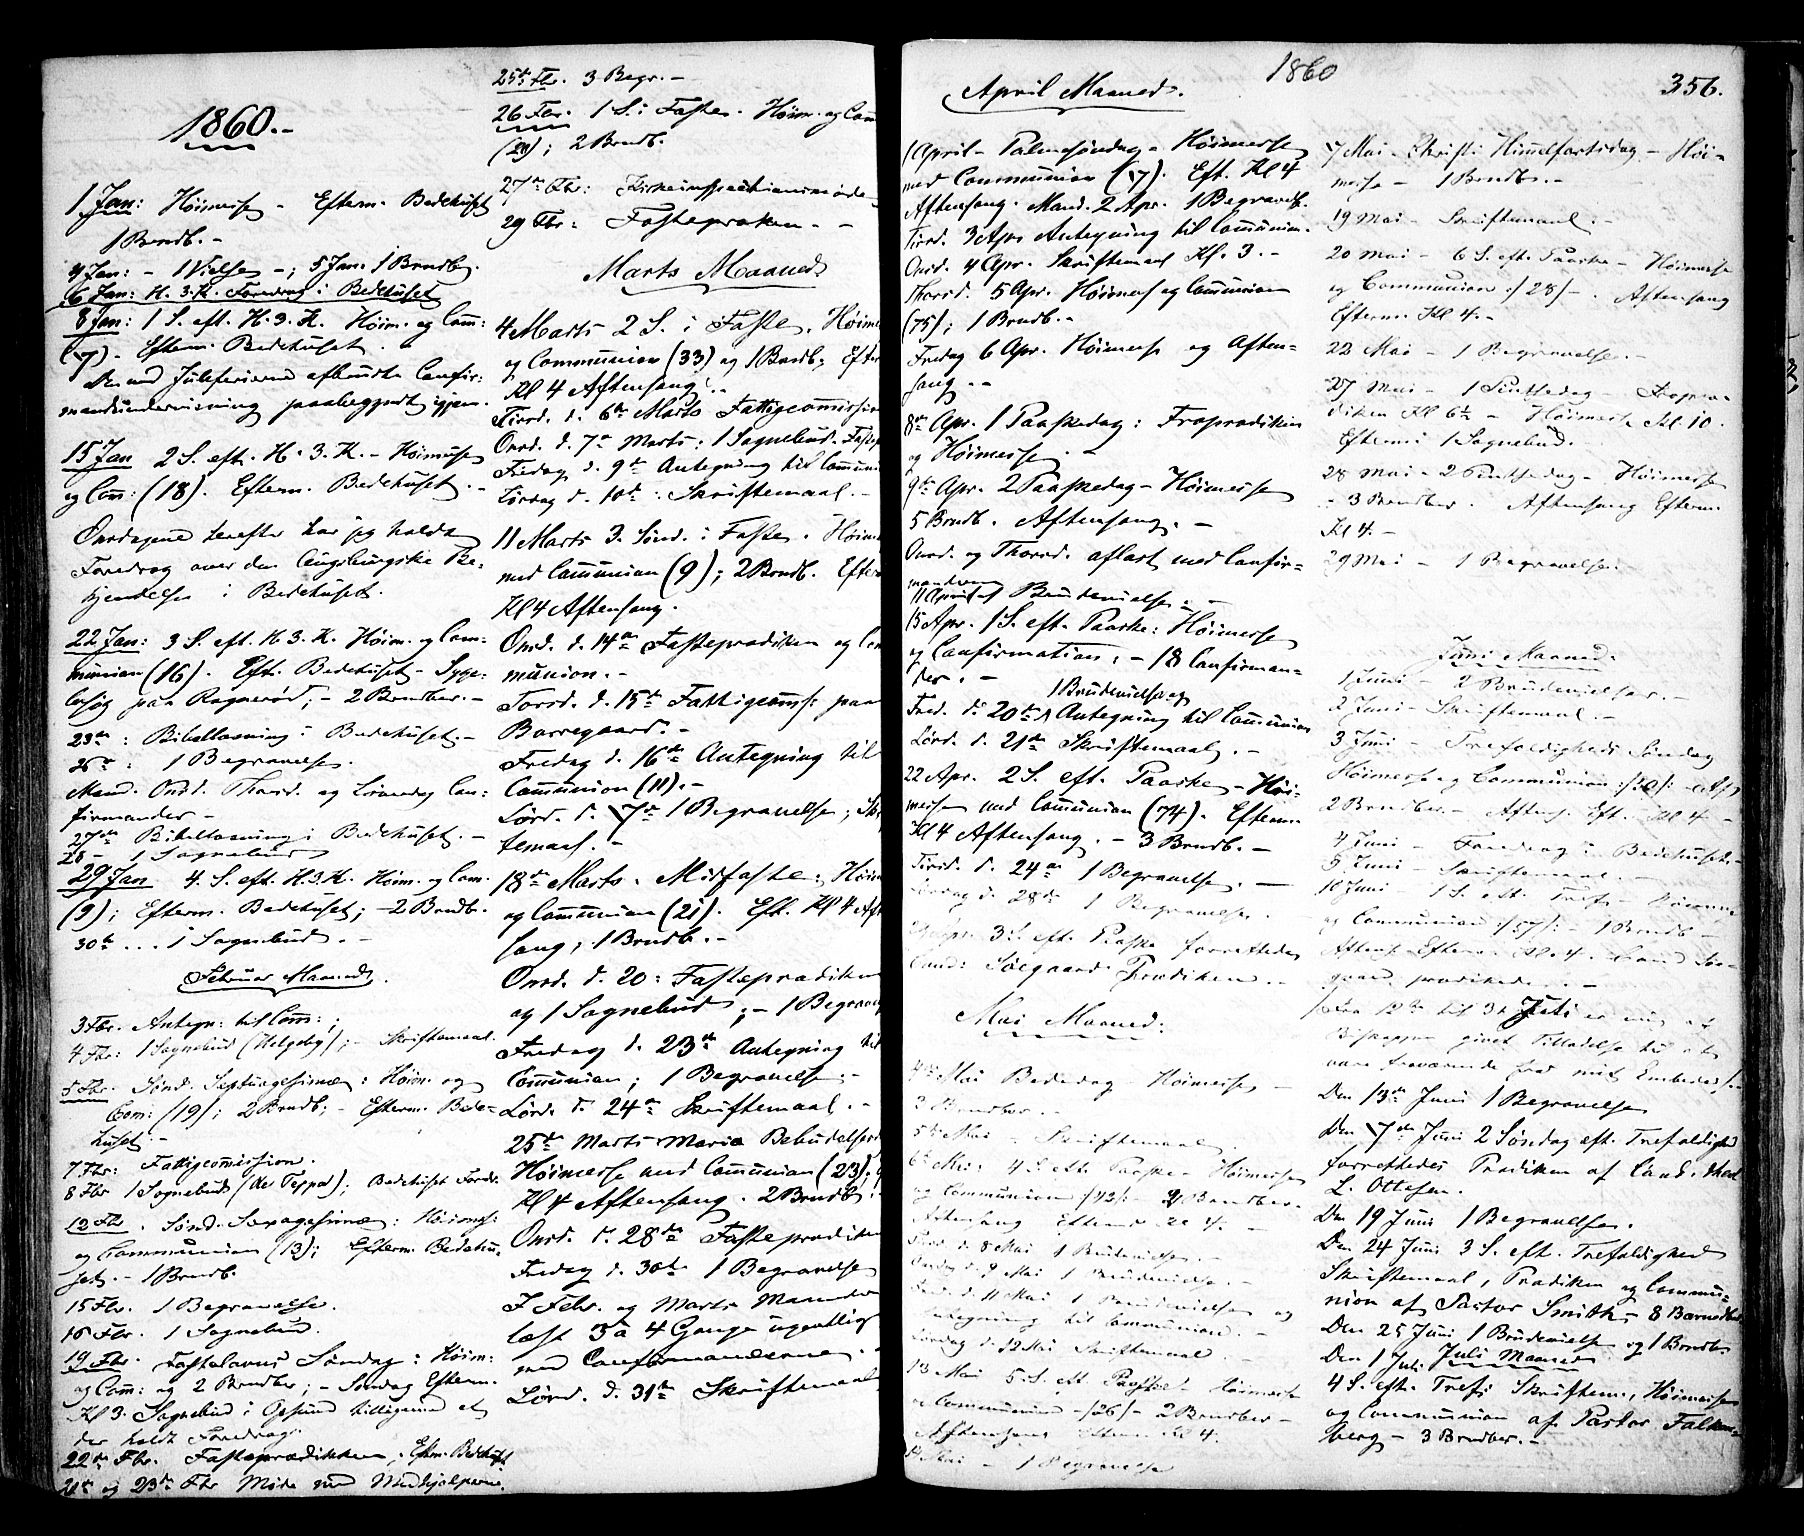 1860.-
1 Jan: Höimesse - Efterm. Bedehuset
1 Brndb. -
4 Jan: - 1 Vielse -; 5 Jan: 1 Brndb.
6 Jan: H. 3. K. Foredrag i Bedehuset
8 Jan: 1 S. eft. H. 3. K. Höim. og Com:
(7). Efterm. Bedehuset.
Den ved Juleferierne afbrudte Confir:
mandundervisning paabegyndt igjen.
15 Jan 2 S. eft. H. 3. K. - Höimesse
og Com: (18). Efterm. Bedehuset. -
Onsdagene herefter har jeg holdt
Foredrag over den Augsburgske Be-
kjendelse i Bedehuset.
22 Jan: 3 S. eft. H. 3. K. Höim. og Com-
munion (16). Eft. Bedehuset - Syge-
besög paa Ragnerød; - 2 Brndber. -
23de: Bibellæsning i Bedehuset. -
25de: 1 Begravelse.
Mand. Onsd. Thorsd. og Löverdag Con:
firmander -
27de Bibellæsning i Bedehuset. -
28 - 1 Sognebud
29 Jan 4. S. eft. H. 3. K. Höim. og Com.
(9); Efterm. Bedehuset; - 2 Brndb.
30te ... 1 Sognebud. -
Februar Maaned.
3 Fbr. Antegn: til Com:;
4 Fbr: 1 Sognebud (Helgeby); - Skriftemaal.
5 Fbr. Sönd. Septuagesimæ: Höim. og
Com: (19); 2 Brndb; - Efterm. Bede-
huset. -
7 Fbr: Fattigcommission.
8 Fbr 1 Sognebud (); Bedehuset Foredr.
12 Fbr. Sönd. Sexagesimæ: Höimes:
og Communion (13); Efterm. Bedehu-
set. - 1 Brndb.
15 Fbr. 1 Begravelse.
16 Fbr. 1 Sognebud.
19 Fbr. Fastelavns Söndag: Höim:
og Com: og 2 Brndber; - Söndag Efterm.
Kl 3. Sognebud i Gesund tilligemed et
der holdt Foredrag.
22de Fbr. Fasteprædikken. Efterm. Bedehuset
21de og 23de Fbr Möde med Medhjælperne.
25de Fbr. 3 Begr. -
26 Fbr. 1 S. i Faste. Höim. og Com
(21); 2 Brndb.
27de Fbr: Kirkeinspectionsmöde -
29 Fbr: Fastepræken. -
Marts Maaned
4 Marts 2 S. i Faste. Höime
og Communion (33) og 1 Barndb; Efter
Kl 4 Aftensang. -
Tirsd. d. 6te Marts Fattigcommission
Onsd. d. 7de Marts: 1 Sognebud. Fastep
Fredag d. 9de Antegning til Commun
Lördag d. 10de: Skriftemaal. -
11 Marts 3. Sönd. i Faste. Höim
med Communion (9); 2 Brndb. Efter
Kl 4 Aftensang.
Onsd. d. 14de Fasteprædiken og Com
munion. -
Torsd. d. 15de Fattigcoms: paa
Borregaard. -
Fredag d. 16de Antegning til
Communion (11). -
Lörd. d. 17de 1 Begravelse; Skrif
temaal. -
18de Marts. Midfaste: Höim
og Communion (21). Eft. Kl 4 Aften
sang; 1 Brndb. -
Onsd. d. 20: Fasteprædiken
og 1 Sognebud; - 1 Begravel
Fredag d. 23de Antegning til
Communion; 1 Begravelse. -
Lörd. d. 24de Skriftemaal. -
25de Marts Mariæ Bebudelsesd
Höimesse med Communion (23).
Kl 4 Aftensang. 2 Brndb. -
Onsd. d. 28de Fasteprædiken
Fredag d. 30te 1 Begravelse
I Febr. og Marts Maaneder
læst 3 à 4 Gange ugentlig
med Confirmanderne.
Lörd. d. 31te Skriftemaal
1860
356.
April Maaned.
1 April - Palmesöndag - Höimesse
med Communion (7). Eft. Kl 4
Aftensang. Mand. 2 Apr. 1 Begravels.
Tirsd. 3 Apr. Antegning til Communion.
Onsd. 4 Apr. Skriftemaal Kl. 3. -
Thorsd. 5 Apr. Höimes og Communion
(75); 1 Brndb. -
Fredag 6 Apr. Höimesse og Aften=
sang. -
8de Apr. 1 Paaskedag: Froprædiken
og Höimesse. -
9de Apr. 2 Paaskedag - Höimesse
5 Brndb. Aftensang. -
Onsd. og Thorsd. aflæst med Confir=
manderne
11 April 1 Brudevielse. -
15 Apr. 1 S. eft. Paaske: Höimesse
og Confirmation; - 18 Confirman-
der. -
1 Brudevielse og
Fred. d. 20de Antegning til Communion
Lörd. d. 21de Skriftemaal. -
22 Apr. 2 S. eft. Paaske - Höi-
messe med Communion (74). Efterm.
Kl 4 Aftensang. - 3 Brndb. -
Tirsd. d. 24de 1 Begravelse. -
Lördag d. 28de 1 Begravelse.
29 Apr. 3 S. eft. Paaske forrettedes
Cand: Sölgaard Prædiken. -
Mai Maaned.
4de Mai Bededag - Höimesse -
3 Brndber. -
5te Mai - Skriftemaal
6te Mai: 4 S. eft. Paaske - Höimesse
og Communion /42/: - 2 Brndber.
Aftensang Efterm Kl 4. -
Tirsd. d. 8 Mai 1 Brudevielse.
Onsdag d. 9 Mai 1 Brudevielse. -
Fred. d. 11 Mai 1 Brudevielse og
Antegning til Communion. -
Lördag d. 12 Mai Skriftemaal -
13 Mai 5. S. eft. Paaske - Höimesse
og Communion - /26/ - 2 Brndber -
Aftensang Efterm Kl 4.
Mai - 1 Begravelse
17 Mai - Christi Himmelfartsdag - Höi-
messe - 1 Brndb. -
19 Mai - Skriftemaal. -
20 Mai - 6 S. eft. Paaske - Höimesse
og Communion :/28/ -. Aftensang
Efterm. Kl 4. -
22 Mai - 1 Begravelse. -
27 Mai - 1 Pintsedag - Fropræ-
diken Kl 6½ - Höimesse Kl. 10.
Efterm: 1 Sognebud. -
28 Mai - 2 Pintsedag - Höimesse
- 3 Brndber. Aftensang Efterm.
Kl 4. -
29 Mai - 1 Begravelse.
Juni Maaned.
1 Juni - 2 Brudevielser. -
2 Juni - Skriftemaal. -
3 Juni - Trefoldigheds Söndag
Höimesse og Communion :/30/: -
2 Brndber. - Aftens. Eft. Kl 4. -
4 Juni - Foredrag i Bedehuset. -
9 Juni - Skriftemaal. -
10 Juni - 1 S. eft. Tref. - Höimesse
og Communion :/57/: - 1 Brndb -
Aftens. Efterm. Kl. 4. Cand Söl-
gaard prædikede. -
Fra 12te til 3te Juli er mig af
Biskoppen givet Tilladelse til at
være fraværende fra mit Embede.
Den 13de Juni 1 Begravelse
Den 17de Juni 2 Söndag eft. Trefoldighed
forrettedes Prædiken af Cand. theol
L. Ottesen.
Den 19 Juni 1 Begravelse.
Den 24 Juni 3 S. eft. Trefoldighed
Skriftemaal, Prædiken og Commu-
nion af Pastor Smith, 8 Barnedaab
Den 25 Juni 1 Brudevielse og 1 Brndb
Juli Maaned
Den 1 Juli
4 S. eft. Tref: Skriftem, Höimesse
og Communion af Pastor Falken-
berg - 3 Brndber. -